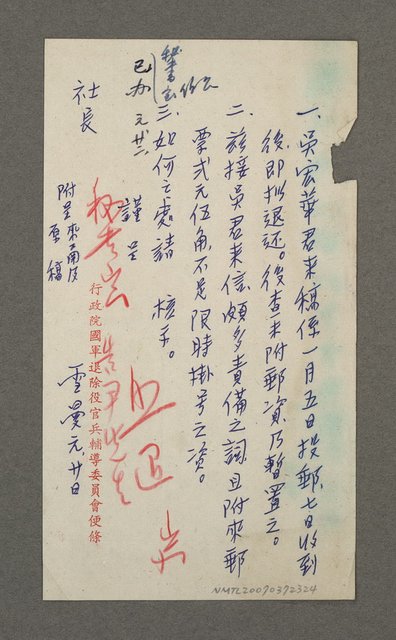 一、吳宏華君來稿係一月五日投郵,七日收到
後即擬退还。後查未附郵資乃暫置之。
二、茲接吳君來信,頗多責備之詞,且附來郵
票弍元伍角,不足限時掛号之資。
三、如何之處請 核示。
謹呈
社長
附呈來函及
原稿
雪曼 元廿日
行政院國軍退除役官兵輔導委員會便條
已办 元廿二
NMTL20090372324